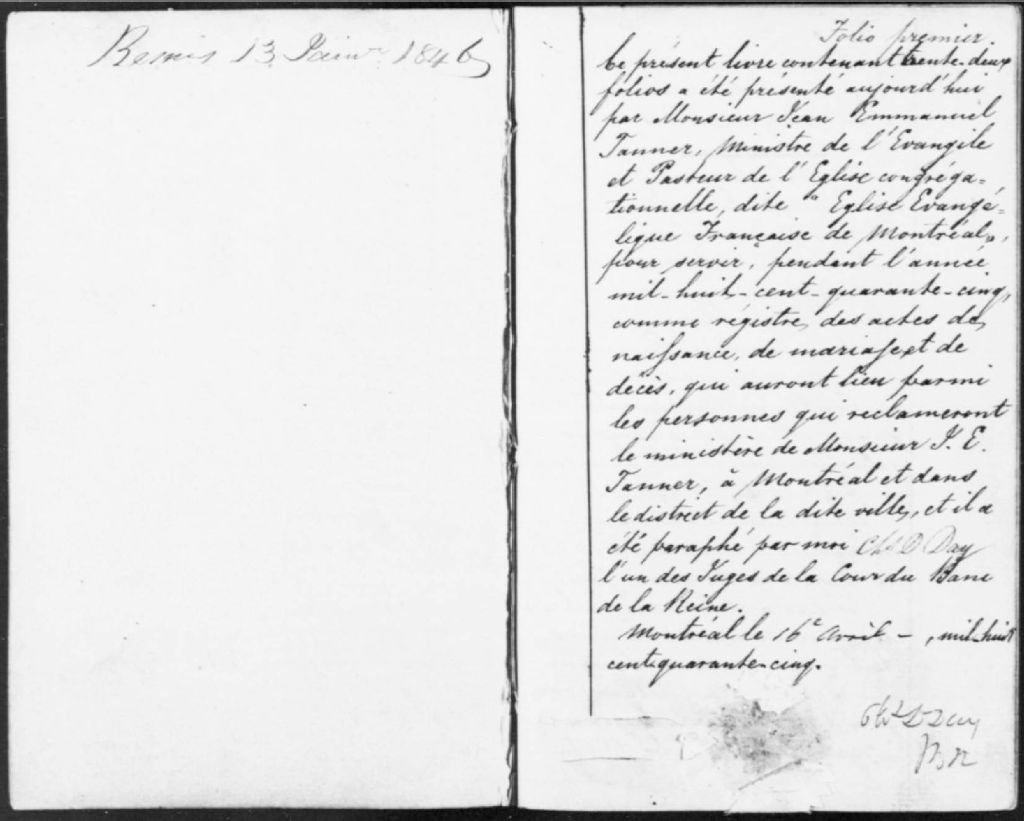 Remis 13 Janvr 1846
Folio premier
Le présent livre contenant trente-deux
folios a été présenté aujourd'hui
par Monsieur Jean Emmanuel
Tanner, Ministre de l'Evangile
et Pasteur de l'Eglise congréga=
tionnelle, dite " Eglise Evangé=
lique Française de Montréal",
pour servir, pendant l'année
mil-huit-cent-quarante-cinq,
comme régistre, des actes de
naissance, de mariage et de
décès, qui auront lieu parmi
les personnes qui réclameront
le ministère de Monsieur J. E.
Tanner, à Montréal et dans
le district de la dite ville, et il a
été paraphé par moi Chs D Day
l'un des Juges de la Cour du Banc
de la Reine.
Montréal le 16e Avril - , mil-huit
cent-quarante-cinq.
Chs D Day